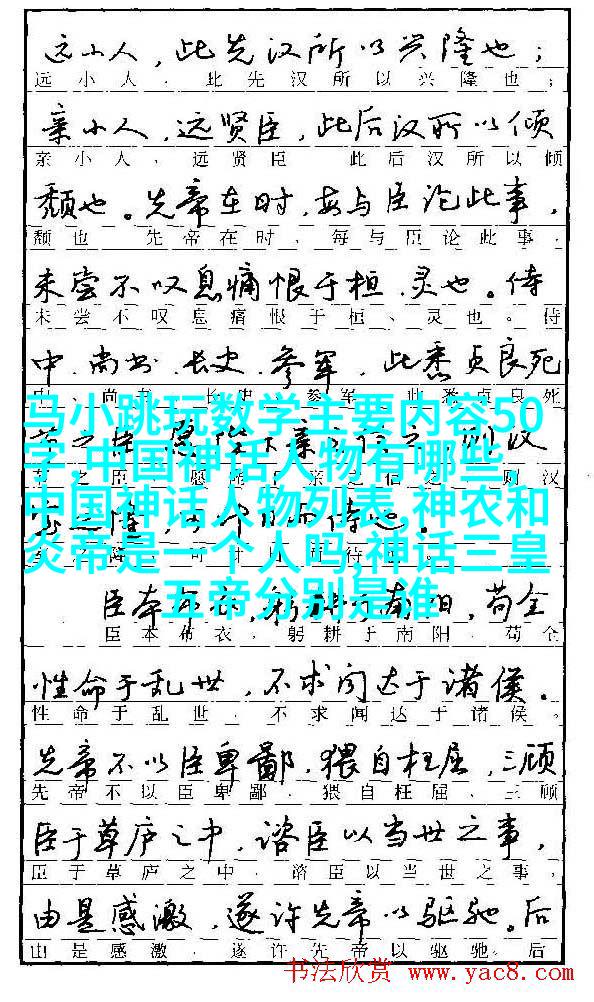 远小人，此先汉所以兴隆也；
远小人，此先汉所以兴隆也；
亲小人，远贤臣，此后汉所以倾
亲小人，远贤臣 此后汉所以倾
颓也。先帝在时，每与臣论此事，
颓也 先帝在时，每与臣论此事，
未尝不叹息痛恨于桓、灵也。侍
未尝不叹息痛恨于桓、灵也。侍
中、尚书、长史、参军，此悉贞良死
中、尚书、长史、参军，此悉贞良死
马小跳玩数学主要内容50
字,中国神话人物有哪些
中国神话人物列表,神农和
炎帝是一个人吗,神话三皇
五帝分别是谁
臣本布衣，躬耕于南阳，苟全
臣本布衣，躬耕于南阳，苟全
性命于乱世，不求闻达于诸侯。
性命于乱世，不求闻达于诸侯。
先帝不以臣卑鄙，猥自枉屈，三顾
先帝不以臣卑鄙，猥自枉屈、三顾
臣于草庐之中，谘臣以当世之事，
臣于草庐之中，谘臣以当世之事，
由是感激，遂许先帝以驱驰。后
由是感激，遂许先帝以驱驰。后
书法欣赏 www.yac8.com